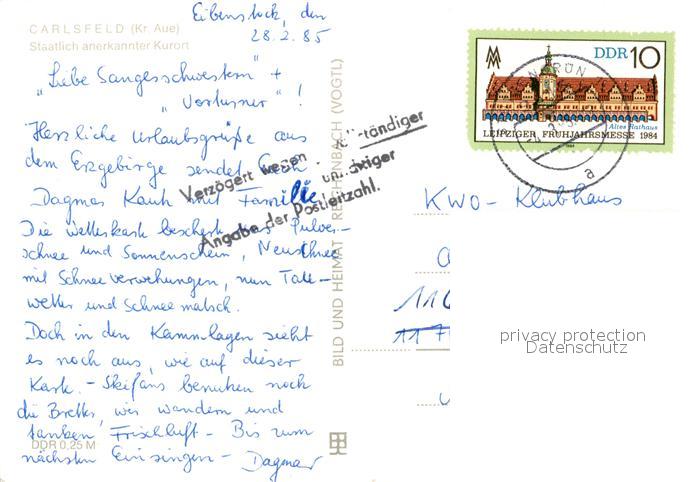 Eibenstock, den
28.2.85
CARLSFELD (Kr. Aue)
Staatlich anerkannter Kurort
"Liebe Sangesschwestern" +
" Vortusner" !
Herzliche Urlaubsgrüße aus
dem Erzgebirge sendet Euch
Dagmar Kauk mit Familie.
Die Wetterkask beschert uns Pulver-
schnee und Sonnenschein, Neuschnee
mit Schneeverwehungen, nun Tau-
wetter und Schneematsch.
Doch in den Kammlagen sieht
es noch aus, wie auf dieser
Karte. - Skifans benutzen noch
die Bretter, wir wandern und
tanken Frischluft - Bis zum
nächsten Einsingen - Dagmar
DDR 0,25 M
Verzögert wegen
ständiger
Angabe der Postleitzahl.
BILD UND HEIMAT REICHENBACH (VOGTL)
DDR 10
Altes Rathaus
LEIPZIGER FRÜHJAHRSMESSE 1984
a
KWO - Klubhaus
116
privacy protection
Datenschutz